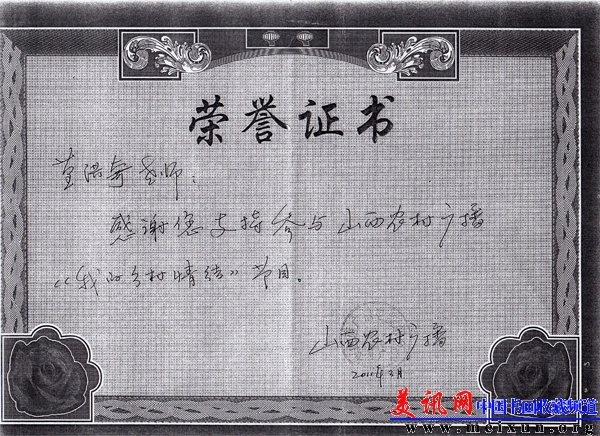 荣誉证书
董洪奇老师：
感谢您支持参与山西农村广播
《我的乡村情结》节目。
山西农村广播
2010年3月
美讯网 中国书画收藏频道
www.meixun.org